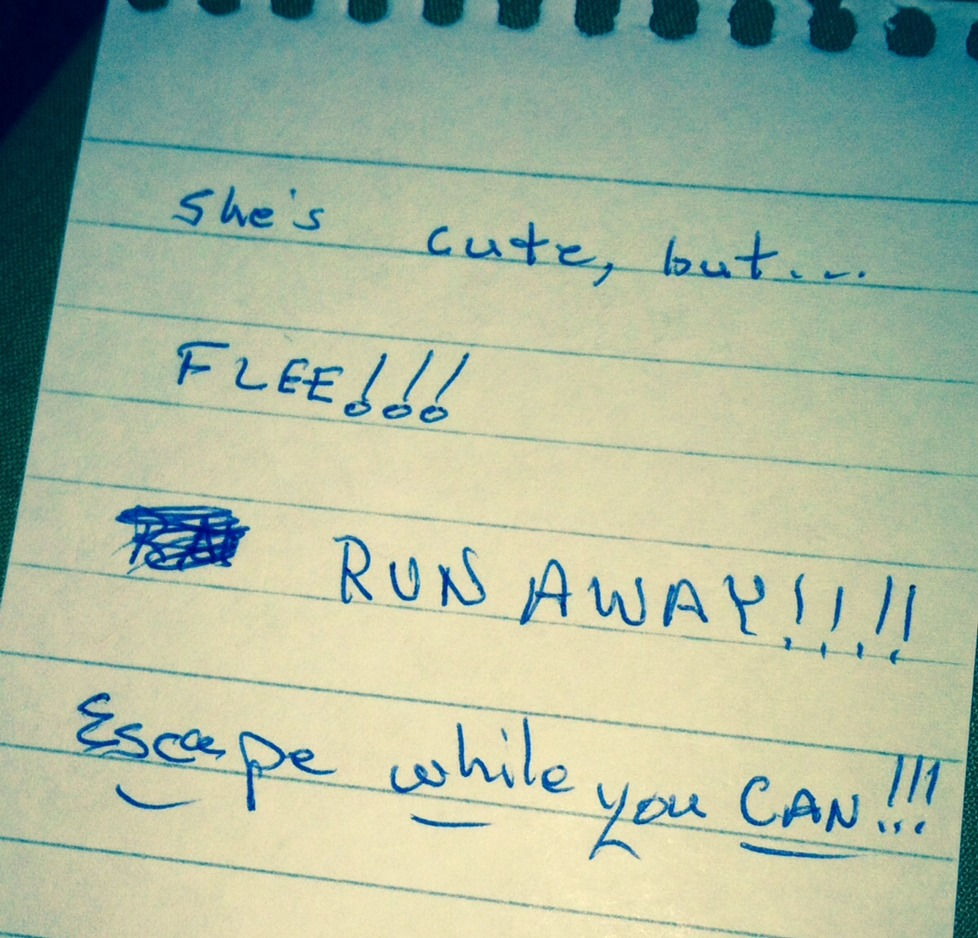 She's cute, but...
FLEE!!!
RUN AWAY!!!!
Escape while you CAN!!!